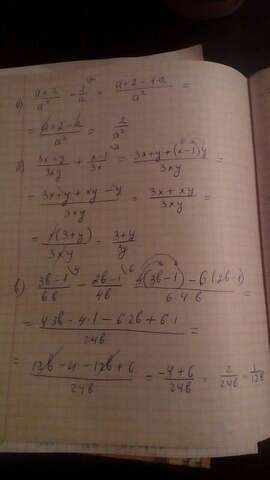 б) a+2/a² - 1/a = a+2-1·a/a² =
= a+2-a/a² = 2/a²
д) 3x+y/3xy + x-1/3x = 3x+y+(x-1)y/3xy =
= 3x+y+xy-y/3xy = 3x+xy/3xy =
= x(3+y)/3xy = 3+y/3y
в) 3b-1/6b - 2b-1/4b = 4(3b-1)-6(2b-1)/6·4·b =
= 4·3b-4·1-6·2b+6·1/24b =
= 12b-4-12b+6/24b = -4+6/24b = 2/24b = 1/12b